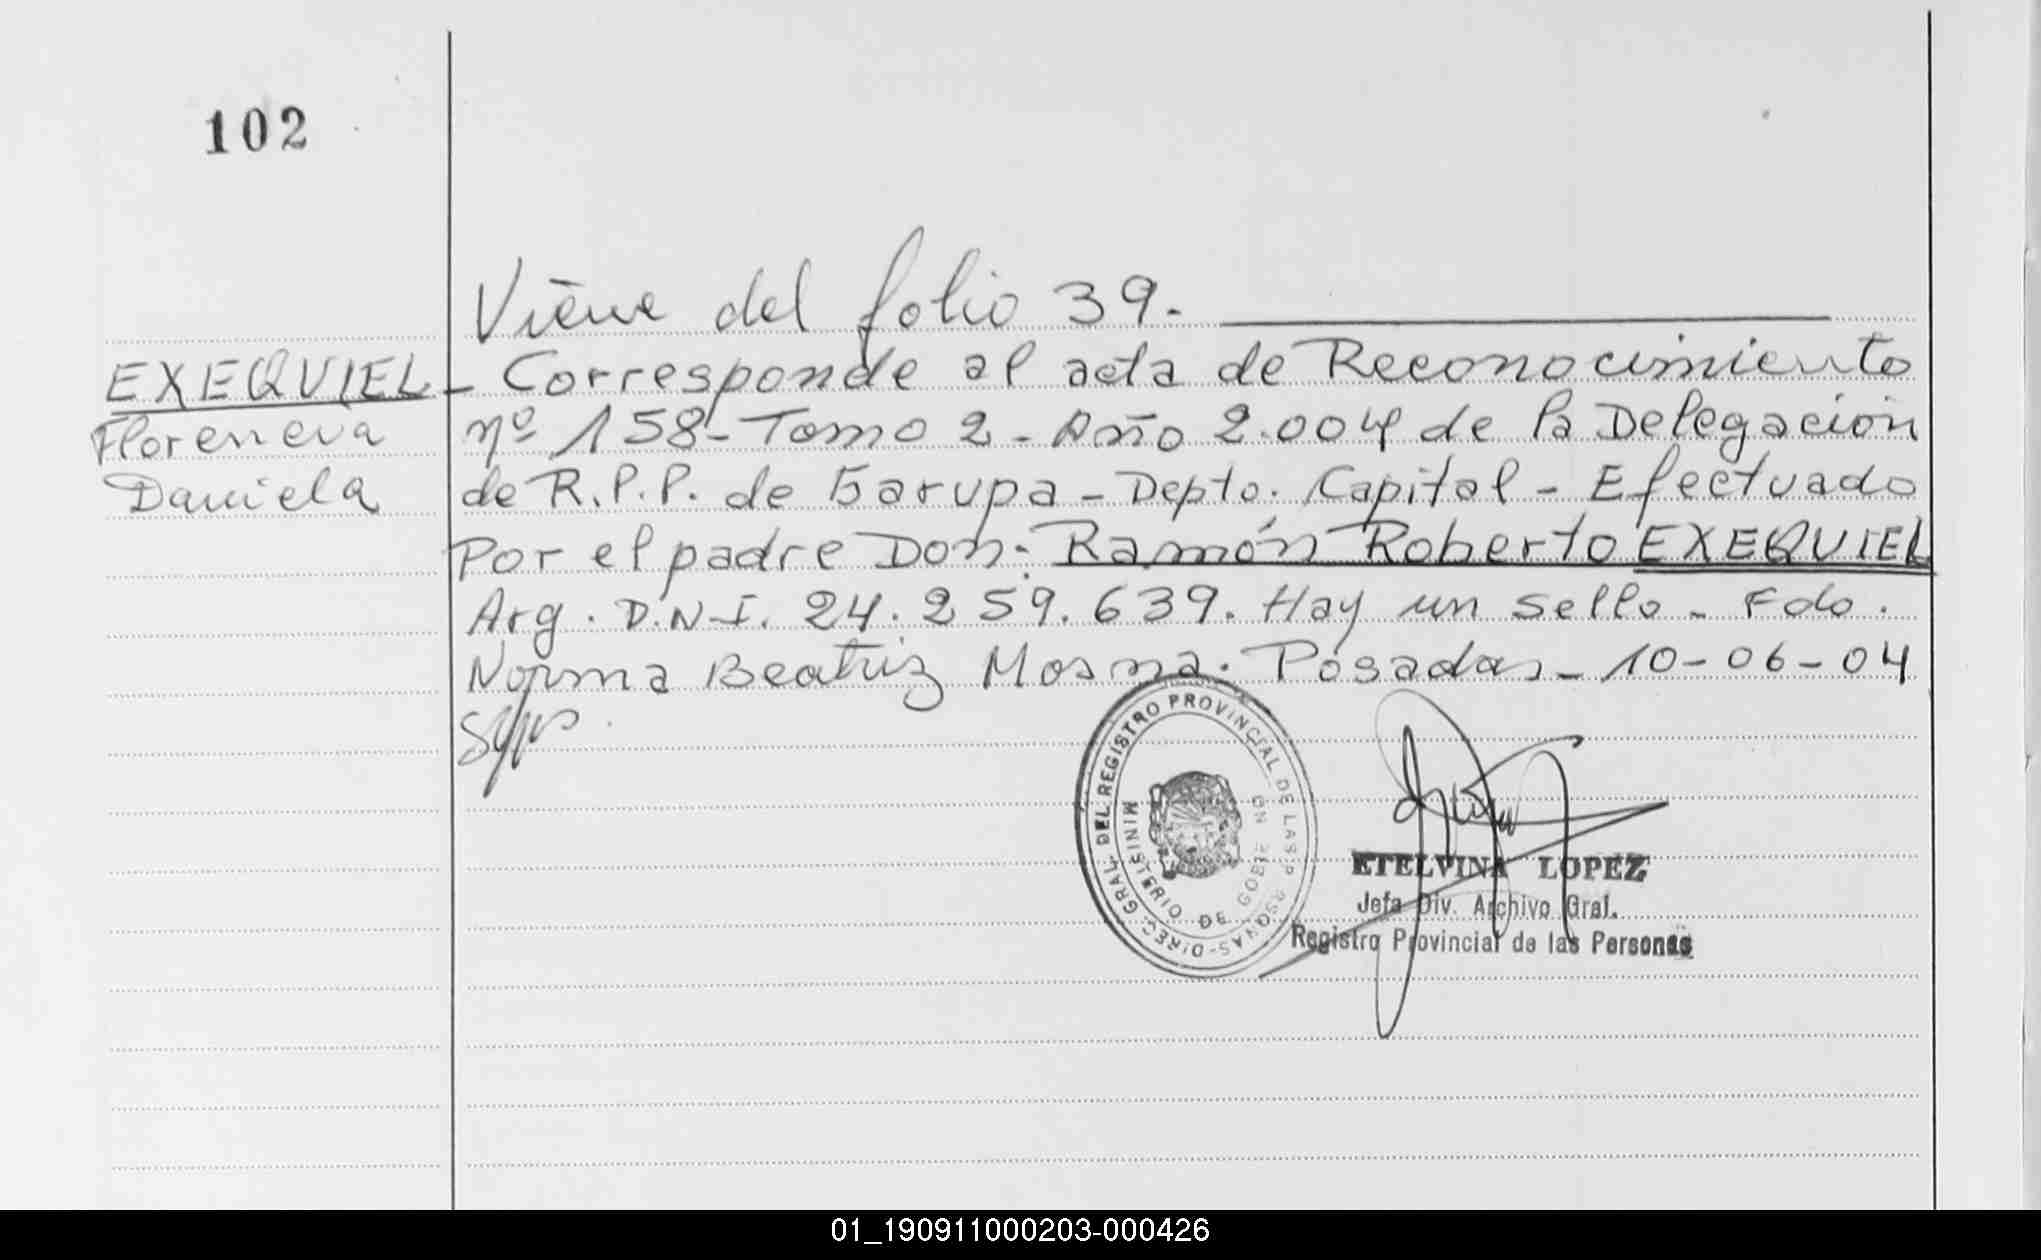 102
Viene del folio 39.-
EXEQUIEL - Corresponde al acta de Reconocimiento
Florencia nº 158- Tomo 2 - Año 2.004 de la Delegación
Daniela de R.P.P. de Garupa - Depto. Capital - Efectuado
Por el padre Don. Ramón Roberto EXEQUIEL
Arg. D.N.I. 24.259.639. Hay un sello - Fdo.
Norma Beatriz Mosna. Posadas - 10-06-04
DIREC. GRAL. DEL REGISTRO PROVINCIAL DE LAS PERSONAS
MINISTERIO DE GOBIERNO
ETELVINA LOPEZ
Jefa Div. Archivo Gral.
Registro Provincial de las Personas
01_190911000203-000426